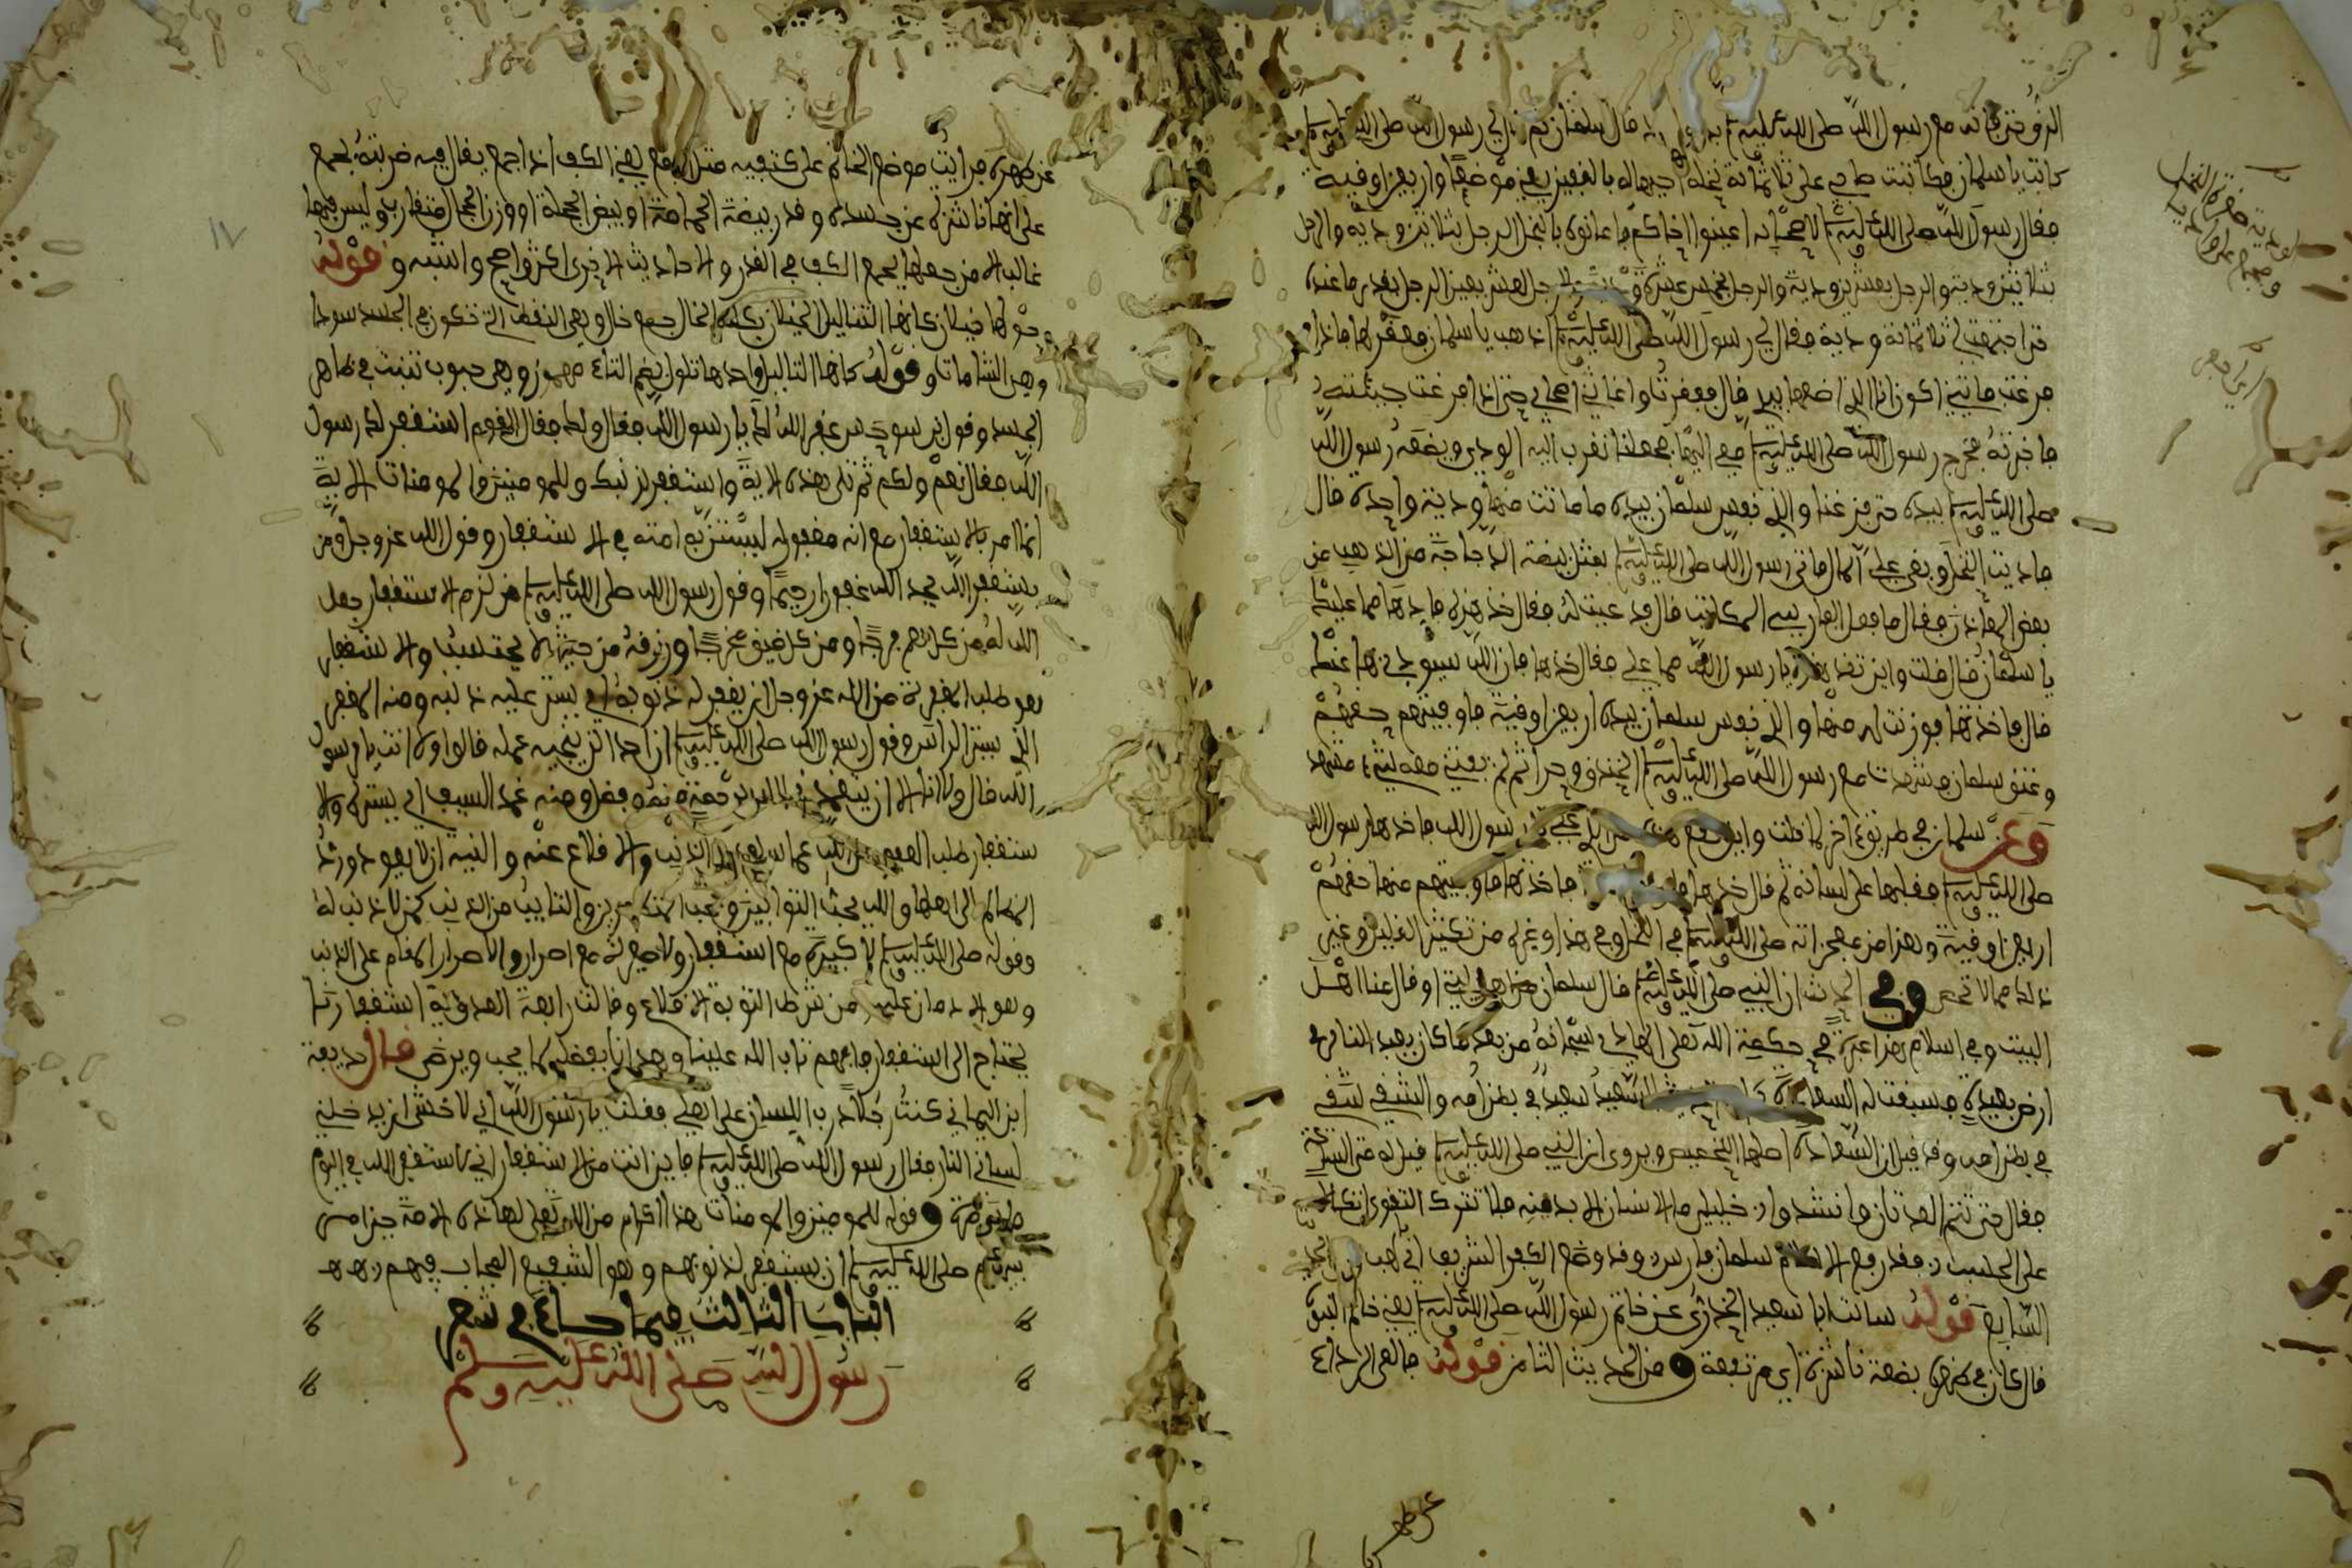 الرق حتى فاته مع رسول الله صلى الله عليه وسلم بدر واحد قال سلمان ثم قال لي رسول الله صلى الله عليه وسلم
كاتب يا سلمان فكاتبت صاحبي على ثلاثمائة نخلة احييها له بالفقير يعني موضعها واربعين اوقية
فقال رسول الله صلى الله عليه وسلم لاصحابه اعينوا اخاكم فاعانوني بالنخل الرجل بثلاثين ودية والرجل
بثلاثين ودية والرجل بعشرين ودية والرجل بخمس عشرة والرجل بعشر يعين الرجل بقدر ما عنده
حتى اجتمعت لي ثلاثمائة ودية فقال لي رسول الله صلى الله عليه وسلم اذهب يا سلمان ففقر لها فاذا
فرغت فاتني اكون انا الذي اضعها بيدي قال ففقرت واعانني اصحابي حتى اذا فرغت جئته
فاخبرته فخرج رسول الله صلى الله عليه وسلم معي اليها فجعلنا نقرب اليه الودي ويضعه رسول الله
صلى الله عليه وسلم بيده حتى فرغنا والذي نفس سلمان بيده ما ماتت منها ودية واحدة قال
فاديت النخل وبقي علي المال فاتي رسول الله صلى الله عليه وسلم بمثل بيضة الدجاجة من الذهب من
بعض المعادن فقال ما فعل الفارسي المكاتب قال فدعيت له فقال خذ هذه فادها مما عليك
يا سلمان قال قلت واين تقع هذه يا رسول الله مما علي فقال خذها فان الله سيودي بها عنك
قال فاخذتها فوزنت لهم منها والذي نفس سلمان بيده اربعين اوقية فاوفيتهم حقهم
وعتق سلمان فشهدت مع رسول الله صلى الله عليه وسلم الخندق حرا ثم لم يفتني معه مشهد
وعن سلمان في طريق اخر لما قلت واين تقع هذه من الذي علي يا رسول الله فاخذها رسول الله
صلى الله عليه وسلم فقلبها على لسانه ثم قال خذها فاوفهم منها فاخذتها فاوفيتهم منها حقهم
اربعين اوقية وهذا من معجزاته صلى الله عليه وسلم في النخل وفي هذا وغيره من تكثير القليل وغير
ذلك مما لا تحصى وفي الحديث ان النبي صلى الله عليه وسلم قال سلمان من اهل البيت او قال منا اهل
البيت وفي اسلام هذا عبرة في حكمة الله تعلى الهادي سبحانه من بعد ما كان يعبد النار في
ارض بعيدة فسبقت له السعادة السعيد سعيد في بطن امه والشقي شقي
في بطن امه وقد قيل ان السعادة اصلها التخصيص ويروى ان النبي صلى الله عليه وسلم قيل له متى الساعة
فقال حتى تتم العدتان وانشدوا خليلي ما الانسان الا بدينه فلا تترك التقوى اتكالا
على الحسب فقد رفع الاسلام سلمان فارس وقد وضع الكفر الشريف ابي لهب الحديث
السابع قوله سالت ابا سعيد الخدري عن خاتم رسول الله صلى الله عليه وسلم يعني خاتم النبوة
قال كان في ظهره بضعة ناشزة اي مرتفعة ومن الحديث الثامن قوله فالقى الرداء
عن ظهره
عن ظهره فرايت موضع الخاتم على كتفيه مثل الجمع يعني الكف اذا جمع يقال فيه ضربته بجمع
على انها ناشزة عن جسده وقدر بيضة الحمامة او بيض الحجلة او وزر الحجال متقارب وليس فيها
غالب الا من جعلها بجمع الكف في القدر والاحاديث الاخرى اكثر واصح واشبه وقوله
حولها خيلان كانها الثئاليل الخيلان بكسر الخاء جمع خال وهي النقط التي تكون في الجسد سودا
وهي الشامات وقوله كانها الثئاليل واحدها ثلول بضم الثاء مهموز وهي حبوب تنبت في ظاهر
الجسد وقول بن سرجس غفر الله لك يا رسول الله فقال ولك فقال القوم استغفر لك رسول
الله فقال نعم ولكم ثم تلى هذه الاية واستغفر لذنبك وللمومنين والمومنات الاية
انما امر بالاستغفار مع انه مغفور له ليستن به امته في الاستغفار وقول الله عز وجل ومن
يستغفر الله يجد الله غفورا رحيما وقول رسول الله صلى الله عليه وسلم من لزم الاستغفار جعل
الله له من كل هم فرجا ومن كل ضيق مخرجا ورزقه من حيث لا يحتسب والاستغفار
هو طلب المغفرة من الله عز وجل ان يغفر له ذنوبه اي يستر عليه ذنبه ومنه المغفر
الذي يستر الراس وقول رسول الله صلى الله عليه وسلم ان احدا لن ينجيه عمله قالوا ولا انت يا رسول
الله قال ولا انا الا ان يتغمدني الله برحمة منه وفضل ومنه غمد السيف اي يستره والا
ستغفار طلب العفو من الله عما سلف من الذنب والاقلاع عنه والنية ان لا يعود ورد
المظالم الى اهلها والله يحب التوابين ويحب المتطهرين والتايب من الذنب كمن لا ذنب له
وقوله صلى الله عليه وسلم لا كبيرة مع استغفار ولا صغيرة مع اصرار والاصرار المقام على الذنب
وهو الادمان عليه من شرط التوبة الاقلاع وقالت رابعة العدوية استغفارنا
يحتاج الى استغفار فافهم تاب الله علينا وهدانا بفضله لما يحب ويرضى قال حذيفة
ابن اليماني كنت رجلا ذرب اللسان على اهلي فقلت يا رسول الله اني لاخشى ان يدخلني
لساني النار فقال رسول الله صلى الله عليه وسلم فاين انت من الاستغفار اني لاستغفر الله في اليوم
ماية مرة وقوله للمومنين والمومنات هذا اكرام من الله تعلى لهاذه الامة حين امر
نبيهم صلى الله عليه وسلم ان يستغفر لذنوبهم وهو الشفيع المجاب فيهم
الباب الثالث فيما جاء في شعر
رسول الله صلى الله عليه وسلم